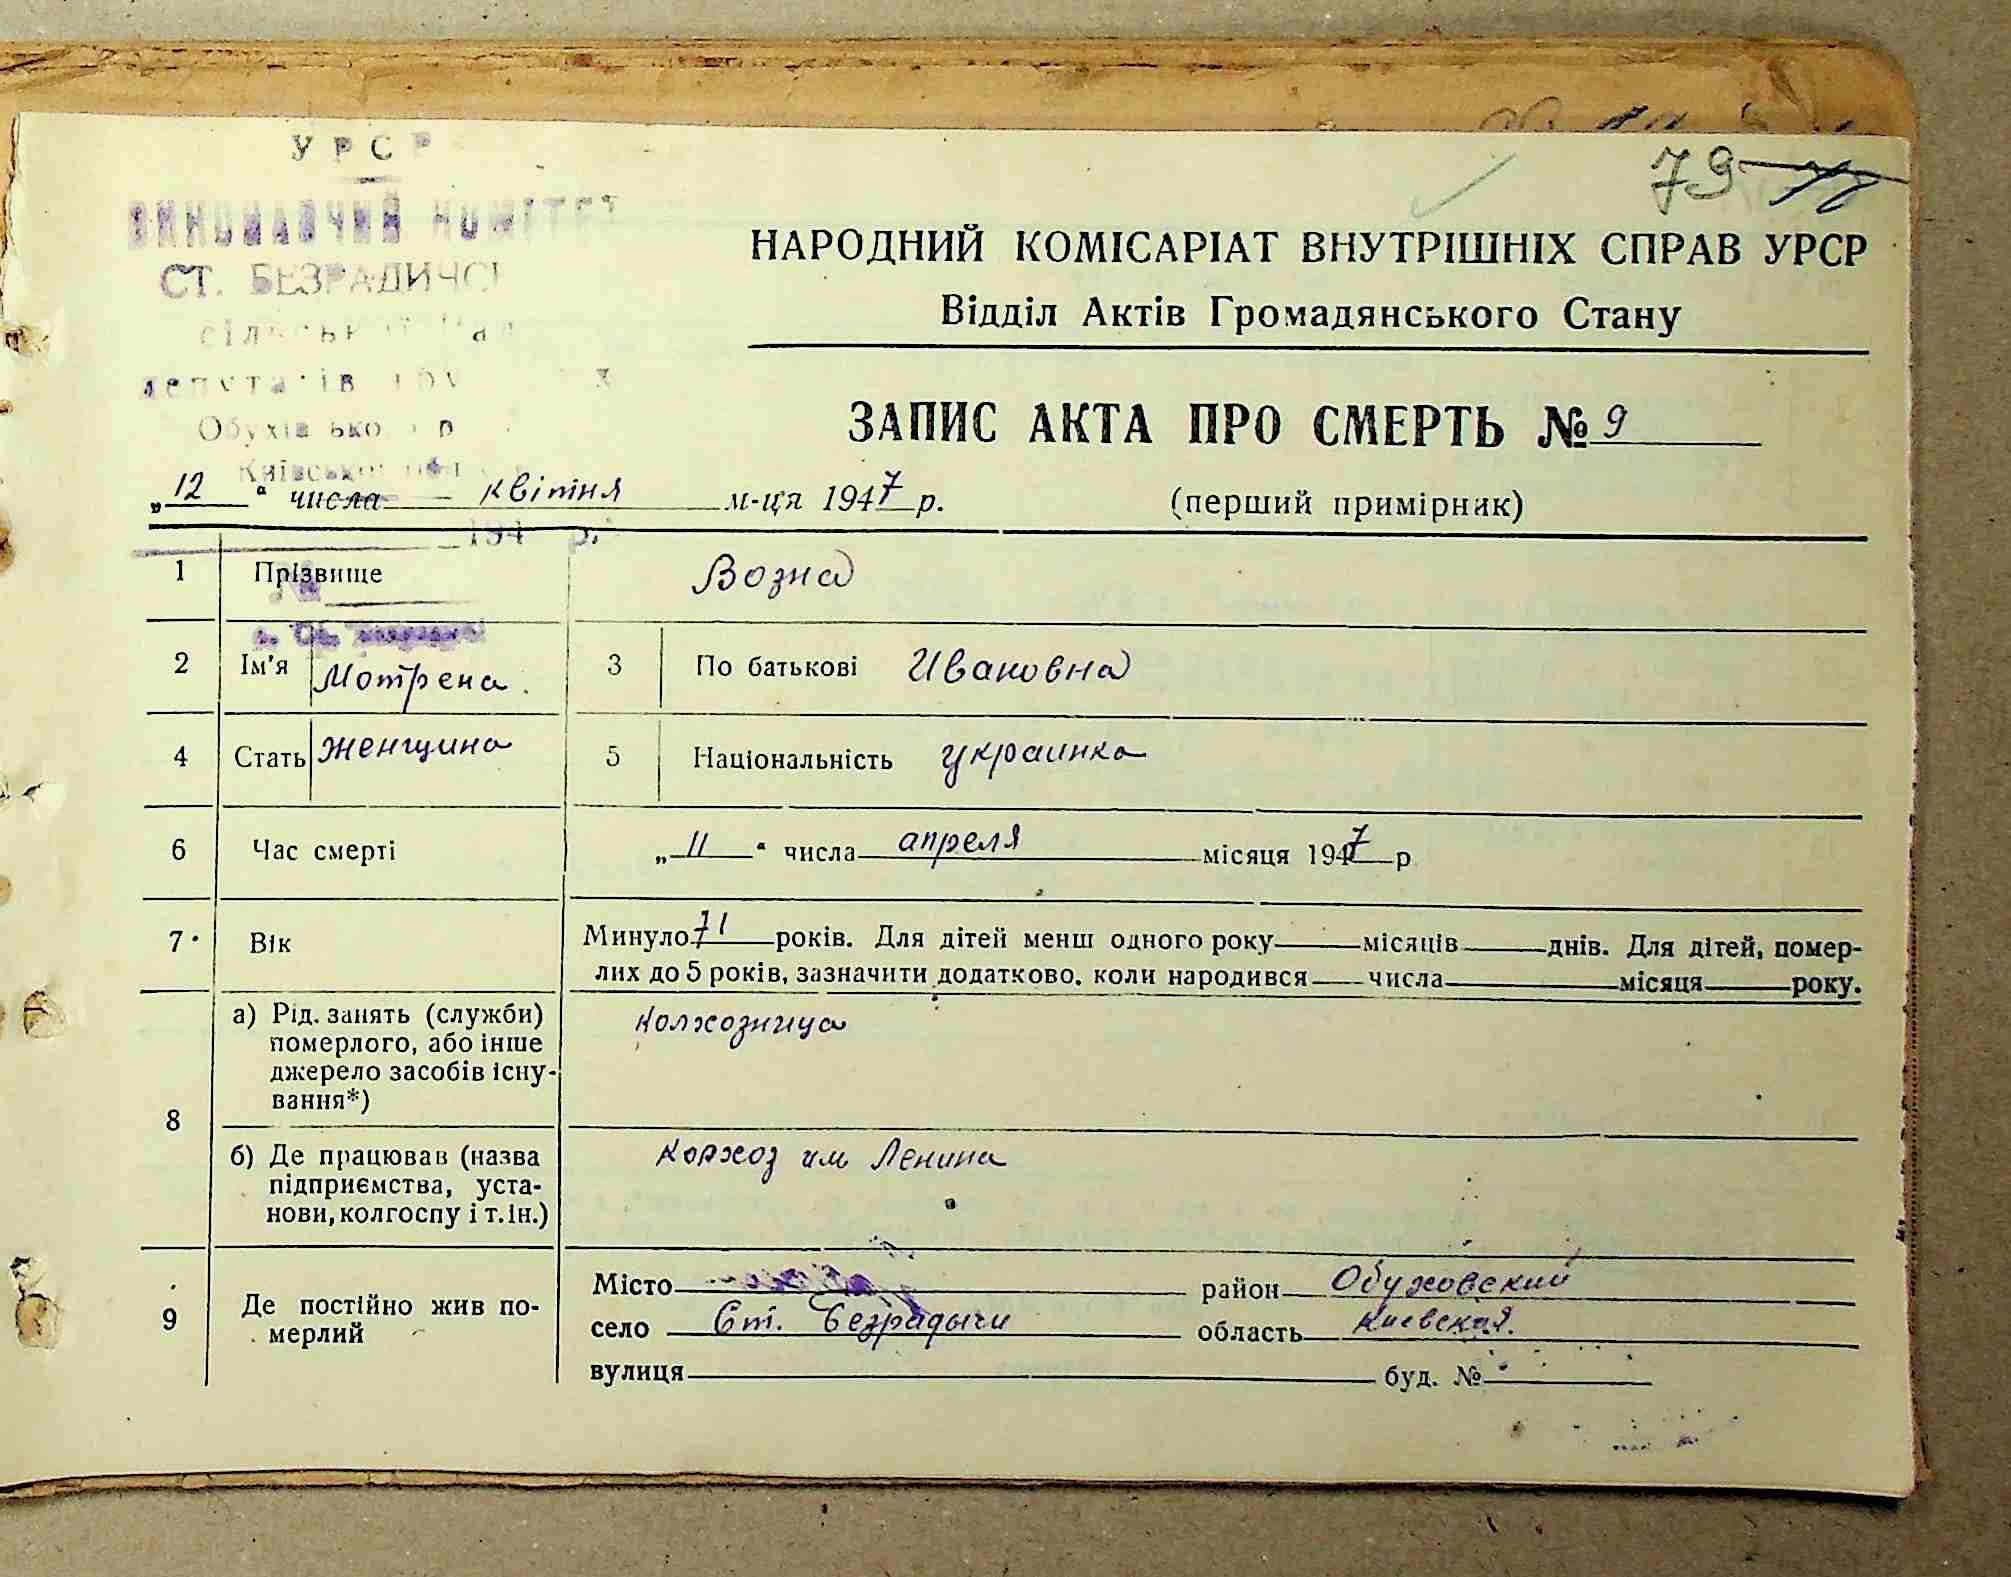 УРСР
ВИКОНАВЧИЙ КОМІТЕТ
СТ. БЕЗРАДИЧСЬ
депутатів
Київської
194 р.
№
79
НАРОДНИЙ КОМІСАРІАТ ВНУТРІШНІХ СПРАВ УРСР
Відділ Актів Громадянського Стану
ЗАПИС АКТА ПРО СМЕРТЬ № 9
„12“ числа квітня м-ця 1947 р.
(перший примірник)
1 Прізвище Возна
2 Ім'я Мотрена. 3 По батькові Ивановна
4 Стать женщина 5 Національність украинка
6 Час смерті „11“ числа апреля місяця 1947 р
7 Вік Минуло 71 років. Для дітей менш одного року місяців днів. Для дітей, помер-
лих до 5 років, зазначити додатково. коли народився числа місяця року.
8 а) Рід. занять (служби) колхозница
померлого, або інше
джерело засобів існу-
вання*)
б) Де працював (назва колхоз им Ленина
підприємства, уста-
нови, колгоспу і т.ін.)
9 Де постійно жив по-
мерлий
Місто район Обуховский
село Ст. Безрадычи область Киевская.
вулиця буд. №